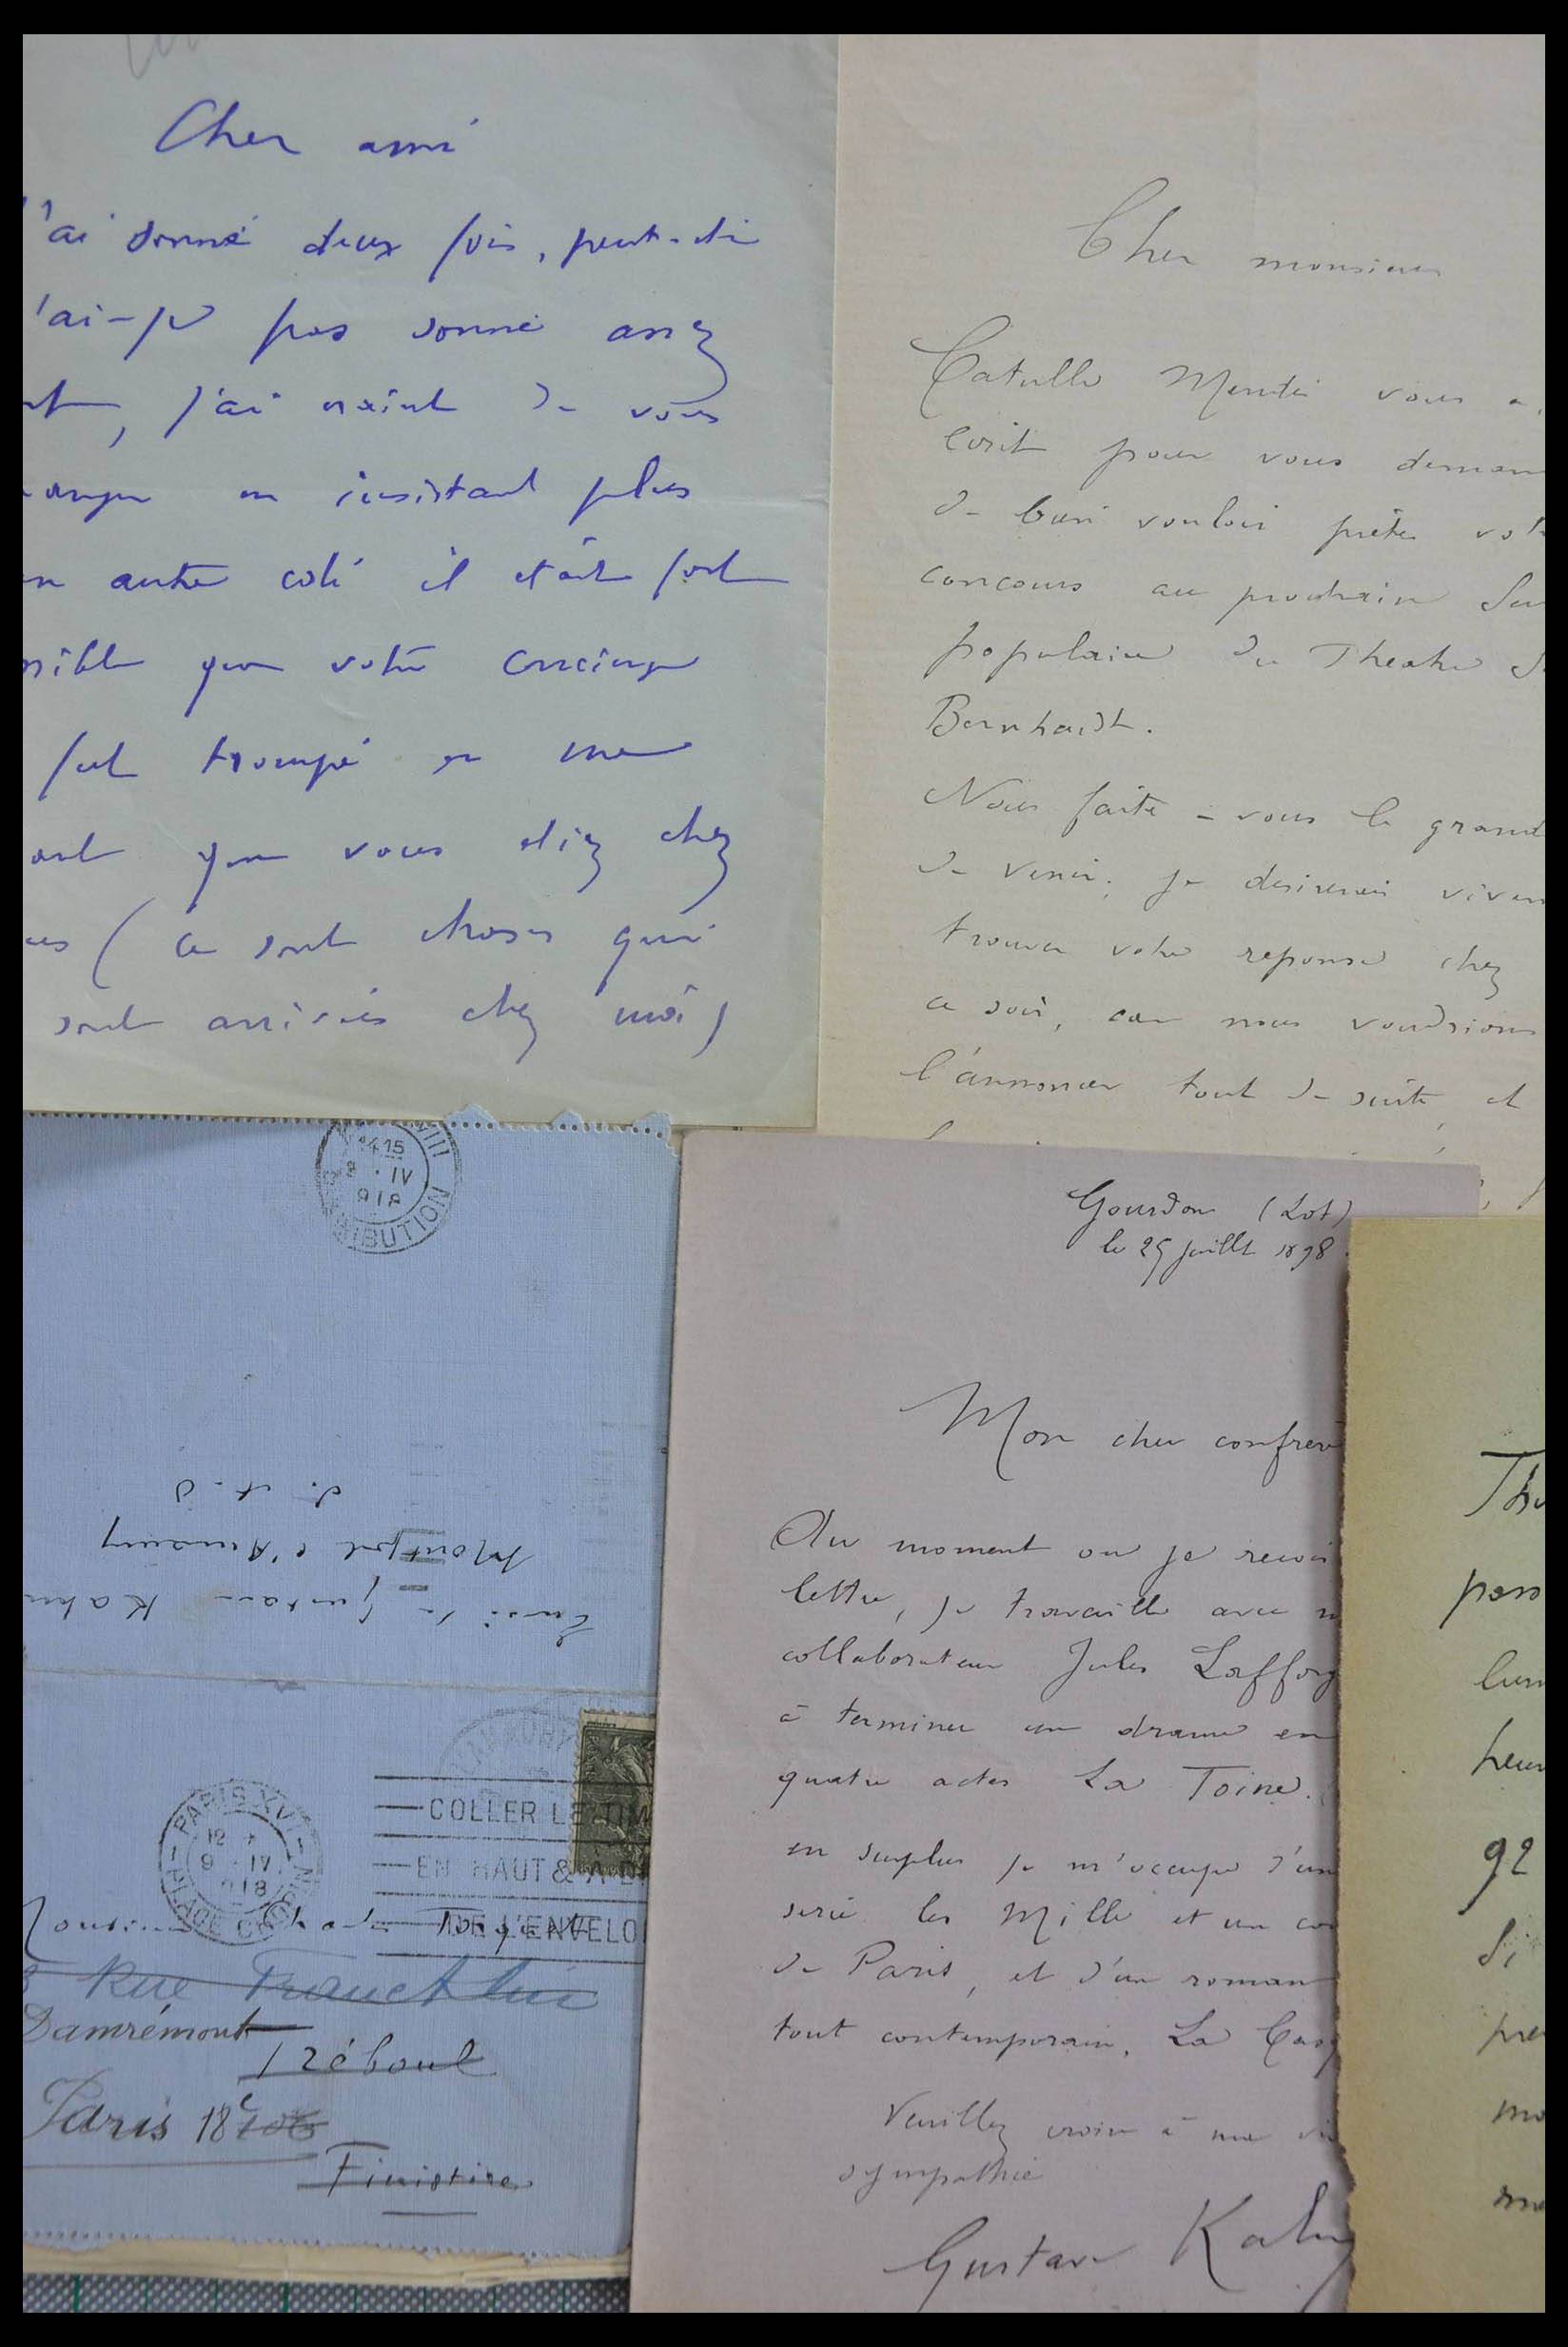 Cher ami
J'ai sonné deux fois, peut-être
n'ai-je pas sonné assez
, j'ai craint de vous
en insistant plus
autre coté il était fort
que votre concierge
fut trompé en me
que vous étiez chez
(ce sont choses qui
sont arrivées chez moi)
Cher monsieur
Catulle Mendès vous a
écrit pour vous deman
de bien vouloir prêter vot
concours au prochain Sam
populaire du Theatre S
Bernhardt.
Nous faite-vous le grand
de venir. je desirerais vivem
trouver votre reponse chez
ce soir, car nous voudrions
l'annoncer tout de suite, et
14 15
8 · IV
918
DISTRIBUTION
Envoi de Gustave Kahn
Montfort l'Amaury
S. et. O
PARIS XVI
12
9 · IV
918
PLACE CHOPIN
COLLER LE TIM
EN HAUT & A D
DE L'ENVELO
Monsieur Charles
Rue Franchlin
Damrémont
Tréboul
Paris 18e
Finistère
Gourdon (Lot)
le 25 juillt 1898
Mon cher confrere
Au moment ou je recoi
lettre, je travaille avec m
collaborateur Jules Lafforg
à terminer un drame en
quatre actes La Toine.
en surplus je m'occupe d'un
serie les Mille et un co
de Paris, et d'un roman
tout contemporain, La Cas
Veuillez croire à ma
sympathie
Gustave Kahn
The
poss
lun
heur
92
Si
pre
mo